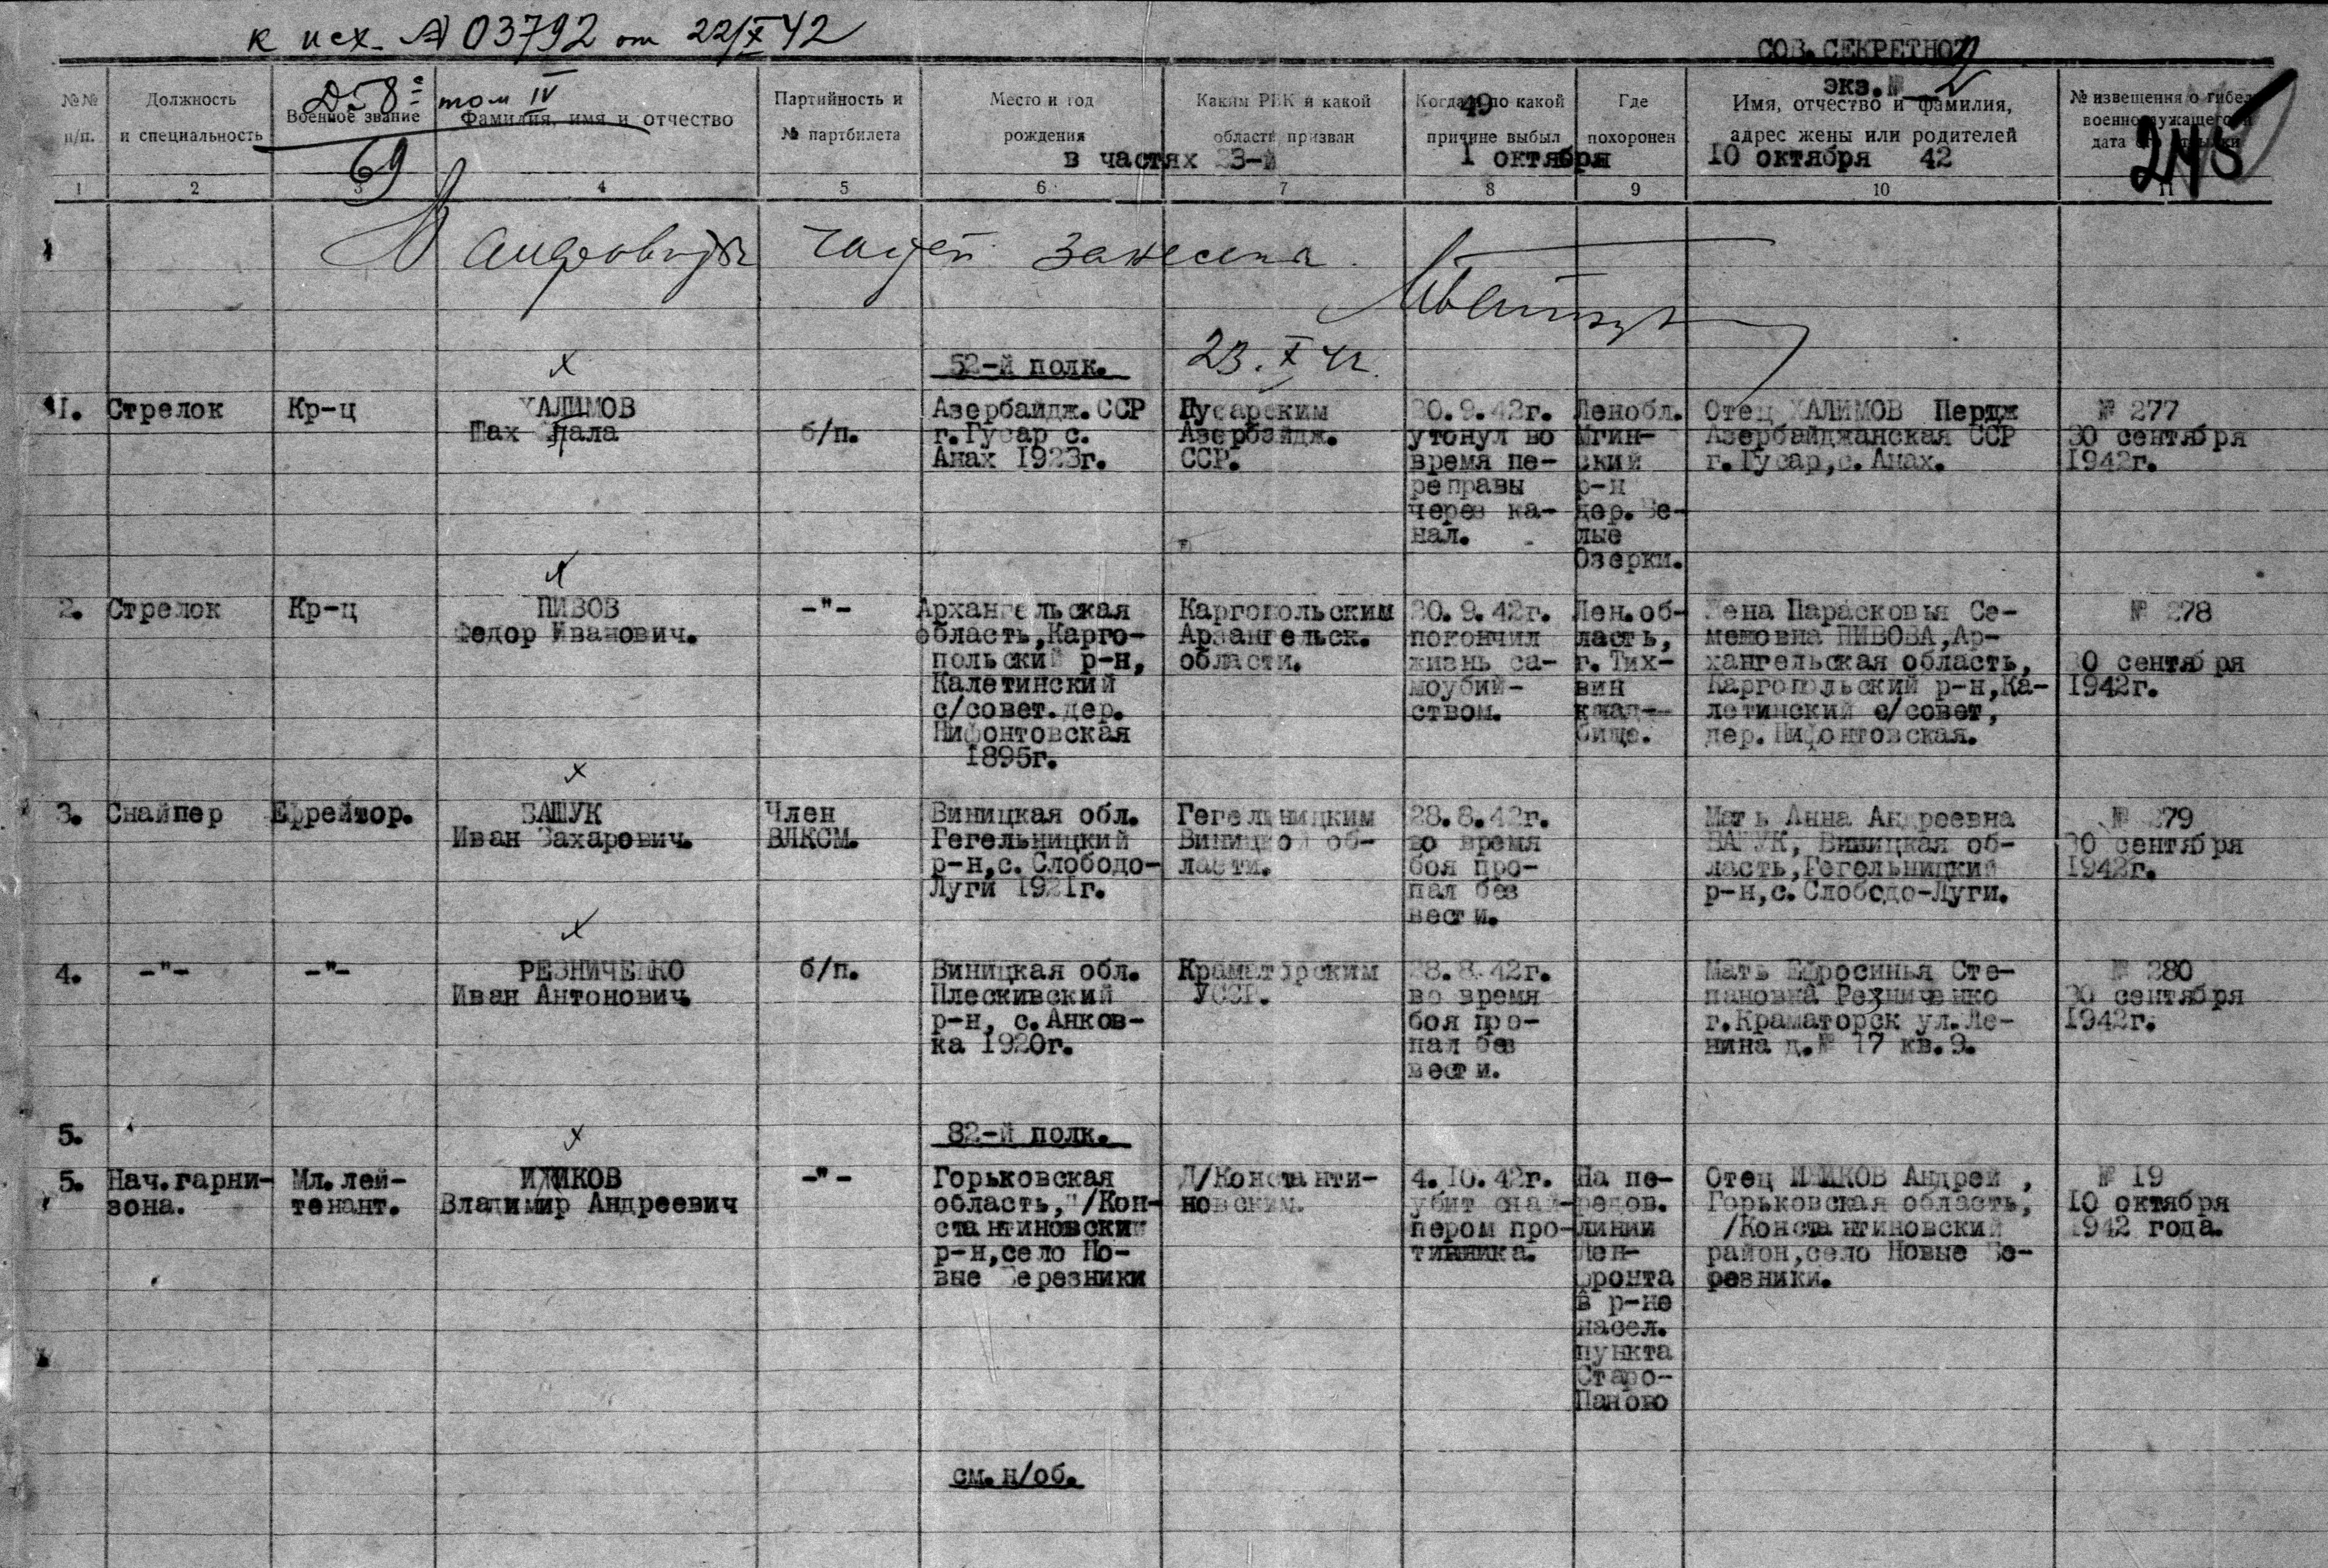 к исх. № 03792 от 22/X 42
СОВ. СЕКРЕТНО
экз.№ 2
Д. 8 том IV
69
245
№№ п/п.
Должность и специальность
Военное звание
Фамилия, имя и отчество
Партийность и № партбилета
Место и год рождения
Каким РВК и какой области призван
Когда и по какой причине выбыл
Где похоронен
Имя, отчество и фамилия, адрес жены или родителей
№ извещения о гибели военнослужащего и дата его
49
в частях 23-й 1 октября 10 октября 42
1 2 3 4 5 6 7 8 9 10 11
частей занесена.
23.X 42.
52-й полк.
1. Стрелок
Кр-ц
ХАЛИМОВ
Шах
б/п.
Азербайдж.ССР
г.Гусар с.
Анах 1923г.
Гусарским
Азербайдж.
ССР.
20.9.42г.
утонул во
время пе-
реправы
через ка-
нал.
Ленобл.
Мгин-
ский
р-н
дер. Бе-
лые
Озерки.
Отец ХАЛИМОВ Пердж
Азербайджанская ССР
г.Гусар,с.Анах.
№ 277
30 сентября
1942г.
2. Стрелок
Кр-ц
ПИВОВ
Федор Иванович.
-"-
Архангельская
область,Карго-
польский р-н,
Калетинский
с/совет.дер.
Нифонтовская
1895г.
Каргопольским
Архангельск.
области.
20.9.42г.
покончил
жизнь са-
моубий-
ством.
Лен.об-
ласть,
г. Тих-
вин
клад-
бище.
Жена Парасковья Се-
меновна ПИВОВА,Ар-
хангельская область,
Каргопольский р-н,Ка-
летинский с/совет,
дер.Нифонтовская.
№ 278
30 сентября
1942г.
3. Снайпер
Ефрейтор.
ВАЩУК
Иван Захарович.
Член
ВЛКСМ.
Виницкая обл.
Гегельницкий
р-н,с.Слободо-
Луги 1921г.
Гегельницким
Виницкой об-
ласти.
28.8.42г.
во время
боя про-
пал без
вести.
Мать Анна Андреевна
ВАЩУК, Виницкая об-
ласть,Гегельницкий
р-н,с.Слободо-Луги.
№ 279
30 сентября
1942г.
4. -"-
-"-
РЕЗНИЧЕНКО
Иван Антонович.
б/п.
Виницкая обл.
Плескивский
р-н, с.Анков-
ка 1920г.
Краматорским
УССР.
28.8.42г.
во время
боя про-
пал без
вести.
Мать Ефросинья Сте-
пановна Резниченко
г.Краматорск ул.Ле-
нина д.№ 17 кв.9.
№ 280
30 сентября
1942г.
5.
82-й полк.
5. Нач.гарни-
зона.
Мл.лей-
тенант.
Владимир Андреевич
-"-
Горьковская
область,Д/Кон-
стантиновский
р-н,село Но-
вые Березники
Д/Константи-
новским.
4.10.42г.
убит снай-
пером про-
тивника.
На пе-
редов.
линии
Лен-
фронта
в р-не
насел.
пункта
Старо-
Паново
Отец Андрей ,
Горьковская область,
/Константиновский
район,село Новые Бе-
резники.
№ 19
10 октября
1942 года.
см.н/об.